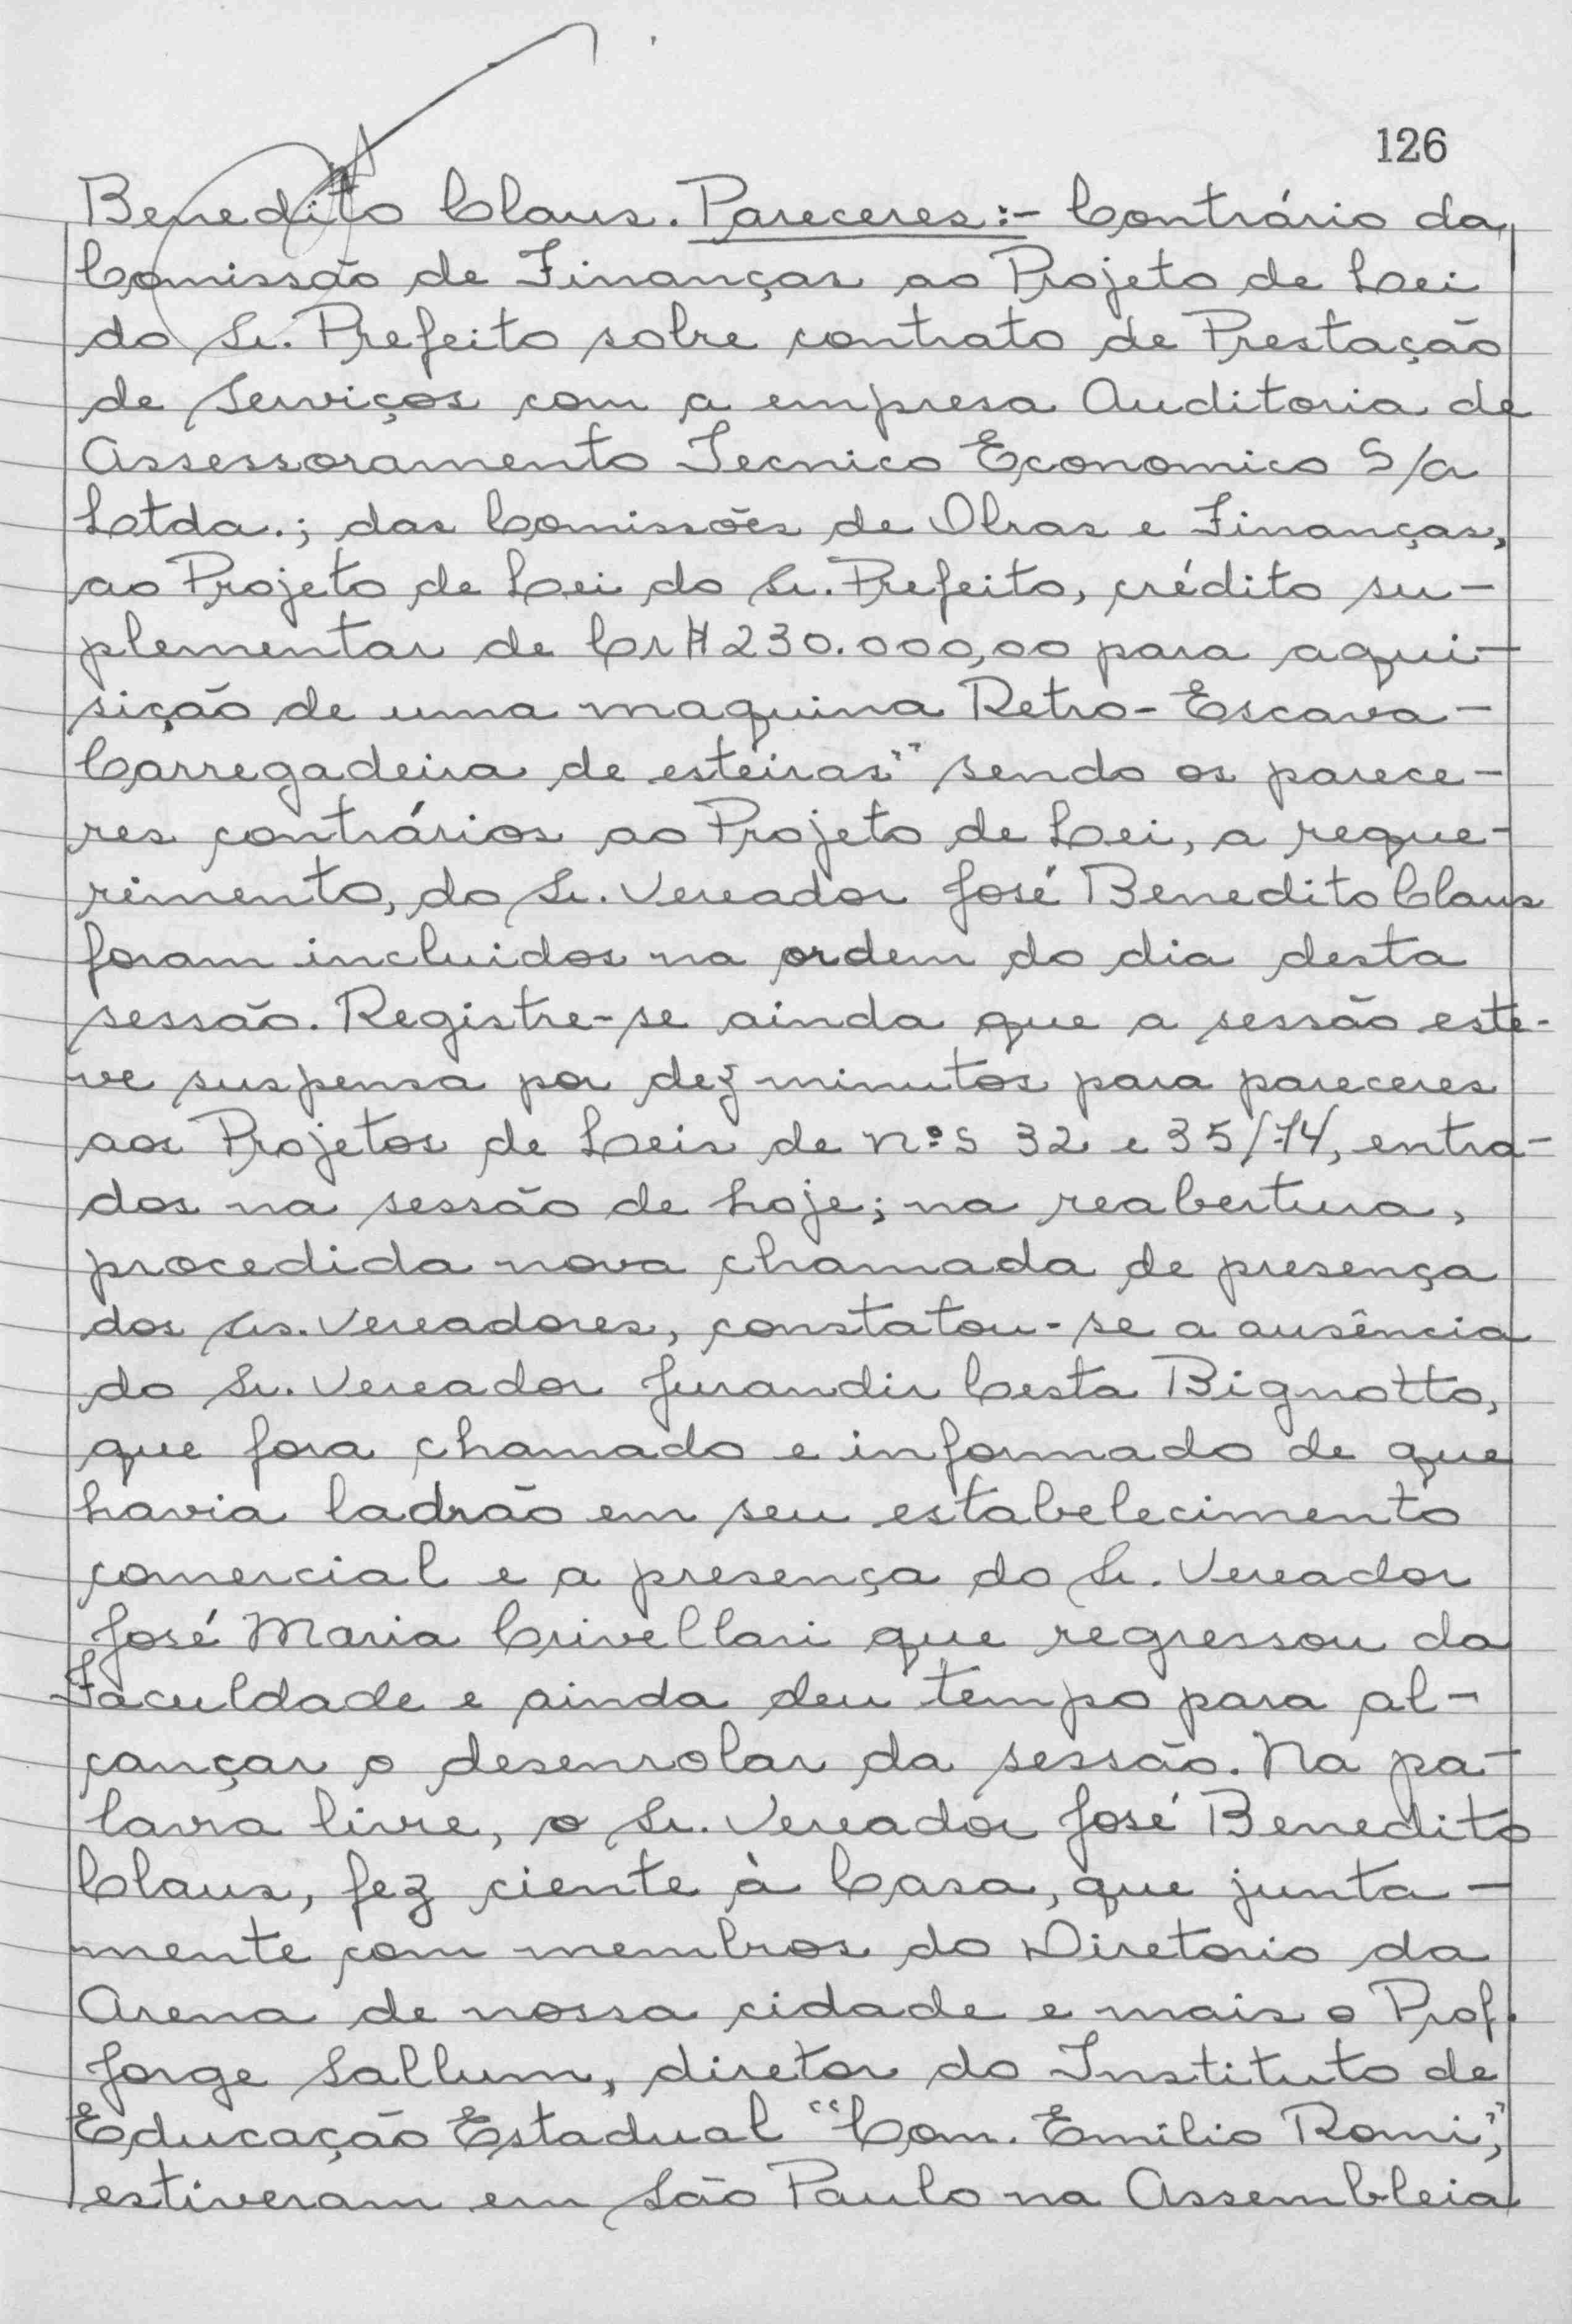 126
Benedito Claus. Pareceres:- Contrário da
Comissão de Finanças ao Projeto de Lei
do Sr. Prefeito sobre contrato de Prestação
de Serviços com a empresa Auditoria de
Assessoramento Tecnico Economico S/A
Ltda.; das Comissões de Obras e Finanças,
ao Projeto de Lei do Sr. Prefeito, crédito su-
plementar de Cr$ 230.000,00 para aqui-
sição de uma maquina Retro-Escava-
Carregadeira de esteiras" sendo os parece-
res contrários ao Projeto de Lei, a reque-
rimento, do Sr. Vereador José Benedito Claus
foram incluidos na ordem do dia desta
sessão. Registre-se ainda que a sessão este-
ve suspensa por dez minutos para pareceres
aos Projetos de Leis de nºs 32 e 35/74, entra-
dos na sessão de hoje; na reabertura,
procedida nova chamada de presença
dos Srs. Vereadores, constatou-se a ausência
do Sr. Vereador Jurandir Cesta Bignotto,
que fora chamado e informado de que
havia ladrão em seu estabelecimento
comercial e a presença do Sr. Vereador
José Maria Crivellari que regressou da
Faculdade e ainda deu tempo para al-
cançar o desenrolar da sessão. Na pa-
lavra livre, o Sr. Vereador José Benedito
Claus, fez ciente à Casa, que junta-
mente com membros do Diretorio da
Arena de nossa cidade e mais o Prof.
Jorge Sallum, diretor do Instituto de
Educação Estadual "Com. Emilio Romi",
estiveram em São Paulo na Assembleia